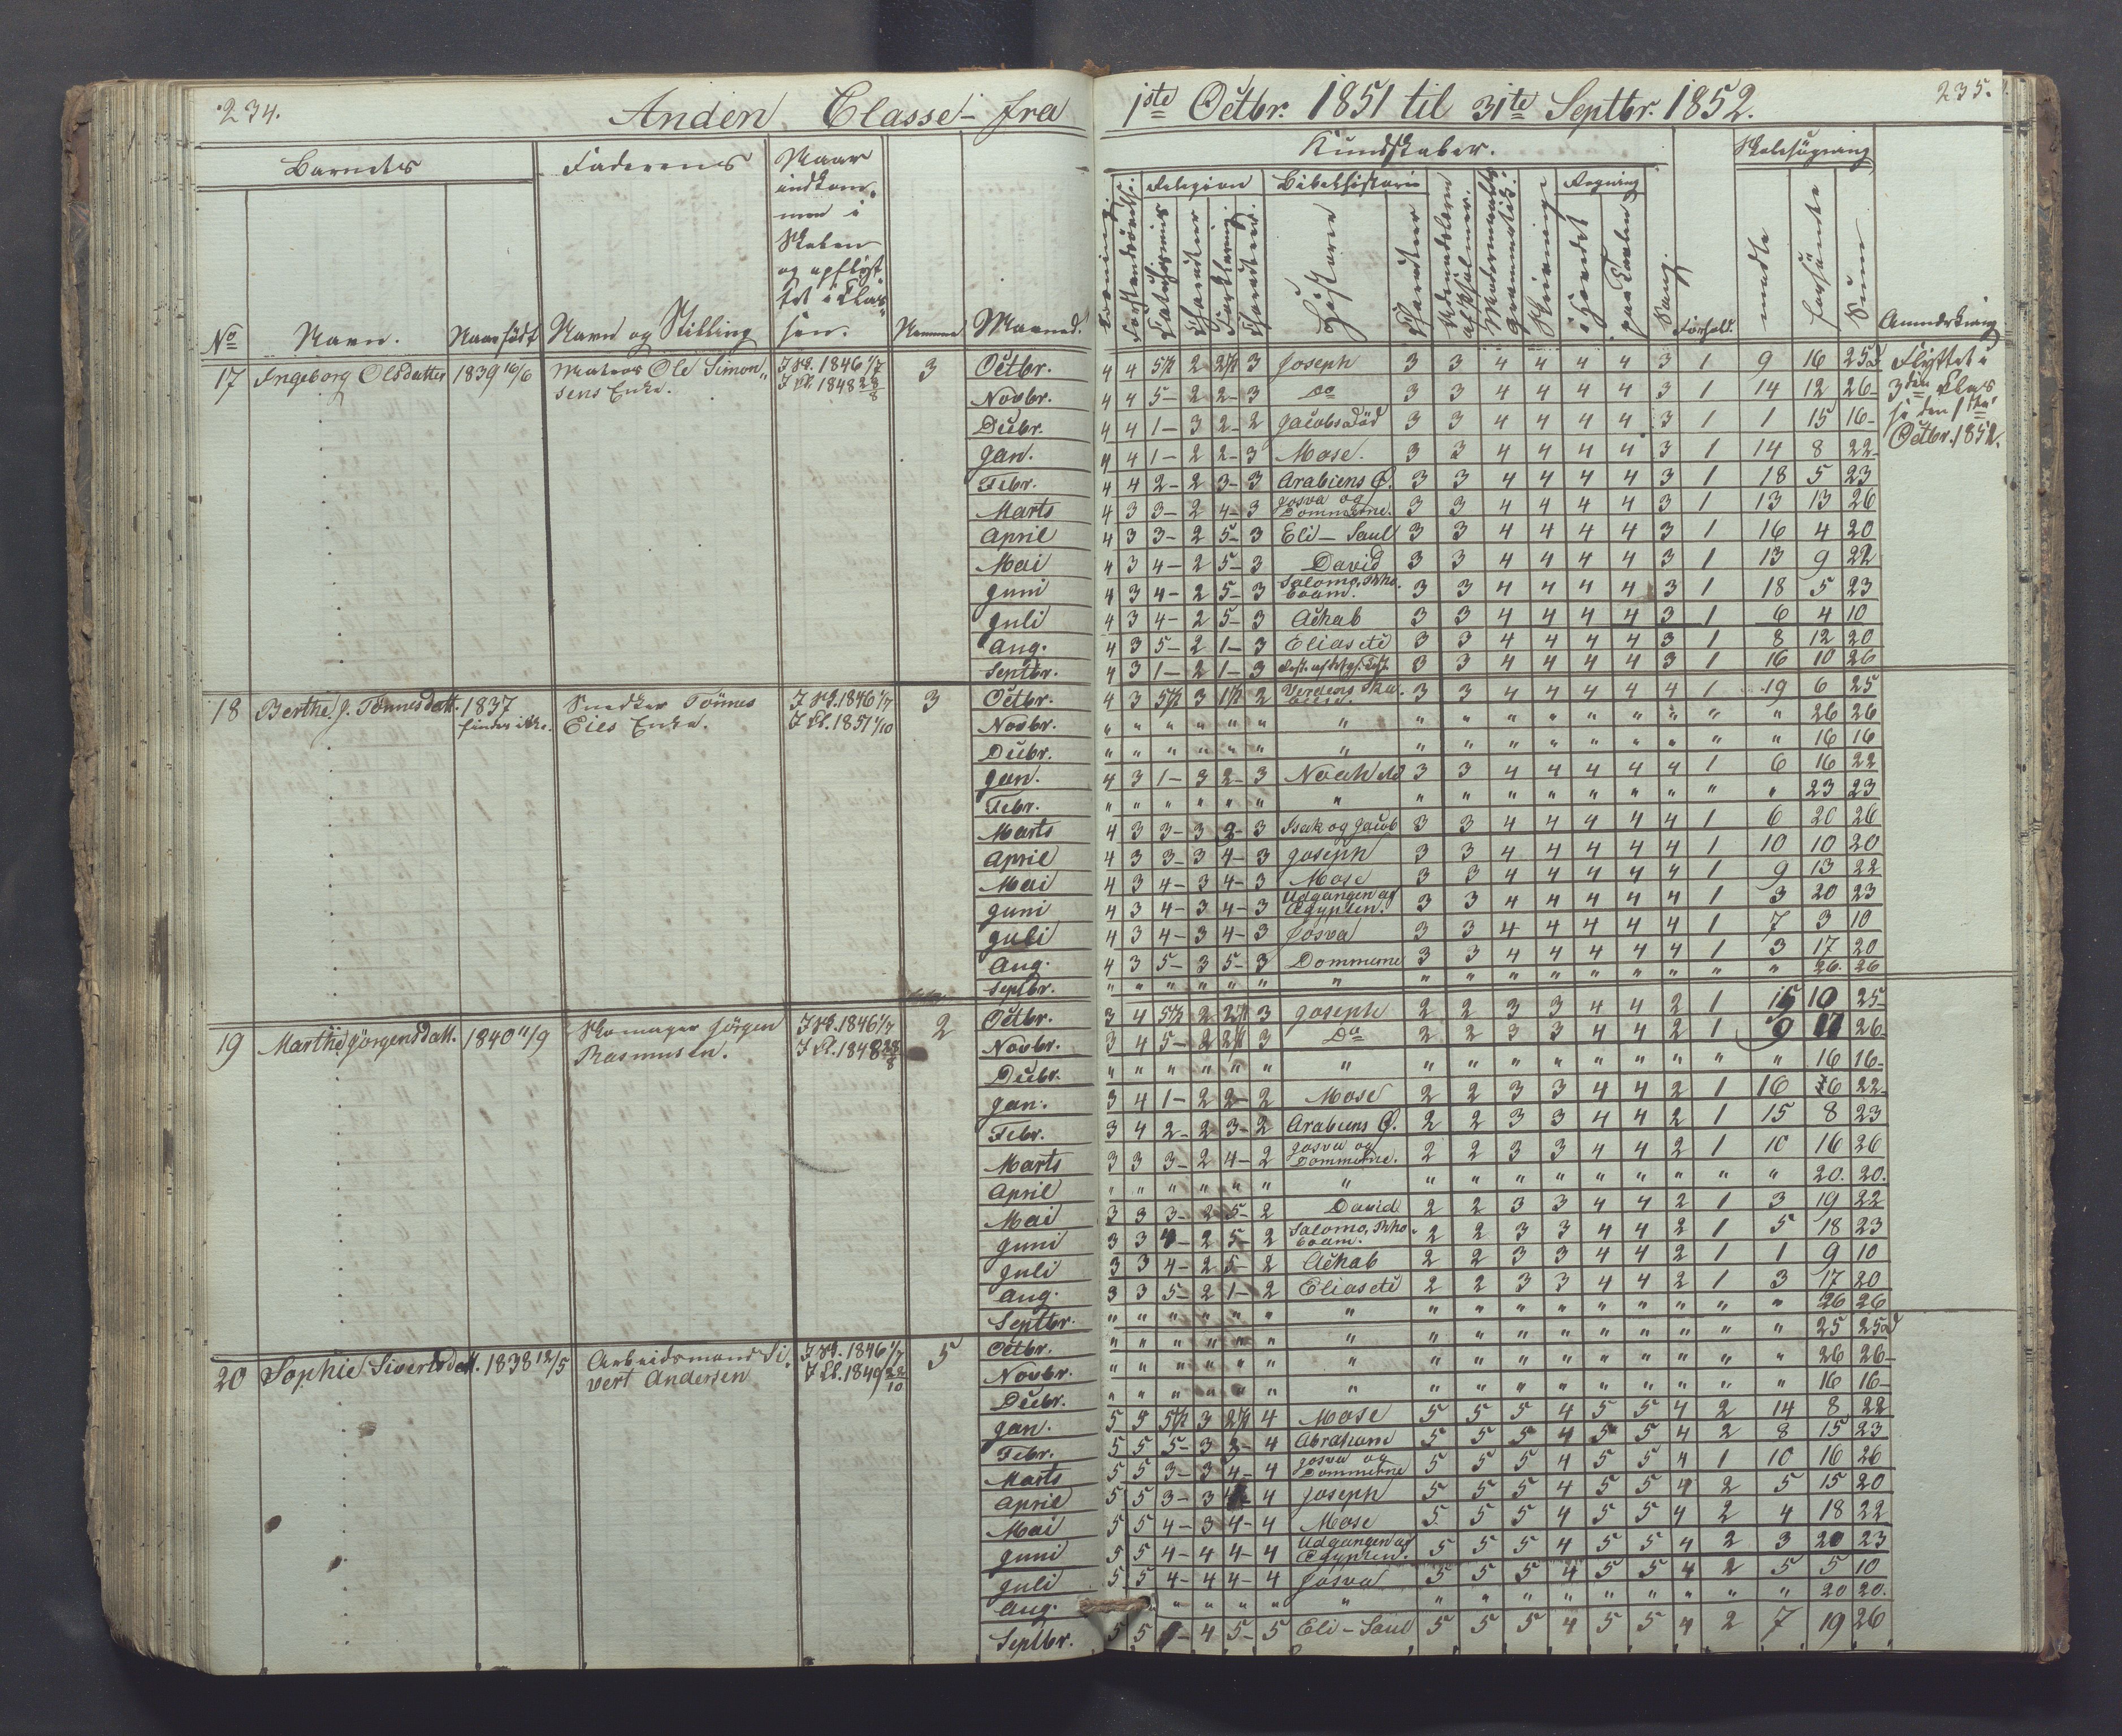 234.
Anden Classe - fra
1ste Octbr. 1851 til 31te Septbr. 1852.
235.
Barnets
Faderens
Naar
indkom-
men i
Skolen
og opflyt-
tet i Clas-
sen.
No
Navn.
Naar født
Navn og Stilling
Nummer
Maaned.
Kundskaber.
Religion
Bibelhistorie
Regning
Skolesøgning
Historie
Skrivning
i Hovedet
paa Tavlen
Sang.
Forhold.
mødte
forsømte
Sum
Anmærkning
17 Ingeborg Olsdatter 1839 16/6 Matros Ole Simon- I Sk. 1846 1/7 3
sens Enke. I Cl. 1848 28/8
Octbr. 4 4 5½ 2 2½ 3 Joseph 3 3 4 4 4 4 3 1 9 16 25 Flyttet i
Novbr. 4 4 5- 2 2- 3 Do 3 3 4 4 4 4 3 1 14 12 26- 3die Clas
Decbr. 4 4 1- 3 2- 2 Jacobs död 3 3 4 4 4 4 3 1 1 15 16- se den 1ste
Jan. 4 4 1- 2 2- 3 Mose. 3 3 4 4 4 4 3 1 14 8 22- Octbr. 1852.
Febr. 4 4 2- 2 3- 3 Arabiens Ø. 3 3 4 4 4 4 3 1 18 5 23
Marts 4 3 3- 2 4- 3 Josva og Dommerne. 3 3 4 4 4 4 3 1 13 13 26
April 4 3 3- 2 5- 3 Eli - Saul 3 3 4 4 4 4 3 1 16 4 20
Mai 4 3 4- 2 5- 3 David 3 3 4 4 4 4 3 1 13 9 22
Juni 4 3 4- 2 5- 3 Salomo, Rhoboam. 3 3 4 4 4 4 3 1 18 5 23
Juli 4 3 4- 2 5- 3 Achab 3 3 4 4 4 4 3 1 6 4 10
Aug. 4 3 5- 2 1- 3 Elias etc 3 3 4 4 4 4 3 1 8 12 20
Septbr. 4 3 1- 2 1- 3 3 3 4 4 4 4 3 1 16 10 26
18 Berthe J. Tönnesdatt. 1837 Snedker Tönnes I Sk. 1846 1/7 3
findes ikke. Eies Enke. I Cl. 1851 1/10
Octbr. 4 3 5½ 3 1½ 2 Verdens Skabelse. 3 3 4 4 4 4 4 1 19 6 25
Novbr. " " " " " " " " " " " " " " " " 26 26
Decbr. " " " " " " " " " " " " " " " " 16 16
Jan. 4 3 1- 3 2- 3 Noah 3 3 4 4 4 4 4 1 6 16 22
Febr. " " " " " " " " " " " " " " " " 23 23
Marts 4 3 3- 3 2- 3 Isak og Jacob 3 3 4 4 4 4 4 1 6 20 26
April 4 3 3- 3 4- 3 Joseph 3 3 4 4 4 4 4 1 10 10 20
Mai 4 3 4- 3 4- 3 Mose 3 3 4 4 4 4 4 1 9 13 22
Juni 4 3 4- 3 4- 3 Udgangen af Ægypten. 3 3 4 4 4 4 4 1 3 20 23
Juli 4 3 4- 3 4- 3 Josva 3 3 4 4 4 4 4 1 7 3 10
Aug. 4 3 5- 3 5- 3 Dommerne 3 3 4 4 4 4 4 1 3 17 20
Septbr. " " " " " " " " " " " " " " " " 26. 26
19 Marthe Jörgensdatt. 1840 11/9 Skomager Jörgen I Sk. 1846 1/7 2
Rasmusen. I Cl. 1848 28/8
Octbr. 3 4 5½ 2 2½ 3 Joseph 2 2 3 3 4 4 2 1 15 10 25-
Novbr. 3 4 5- 2 2½ 3 Do 2 2 3 3 4 4 2 1 9 17 26-
Decbr. " " " " " " " " " " " " " " " " 16 16-
Jan. 3 4 1- 2 2- 2 Mose 2 2 3 3 4 4 2 1 16 6 22-
Febr. 3 4 2- 2 3- 2 Arabiens Ø. 2 2 3 3 4 4 2 1 15 8 23
Marts 3 3 3- 2 4- 2 Josva og Dommerne. 2 2 3 3 4 4 2 1 10 16 26
April " " " " " " " " " " " " " " " " 20. 20.
Mai 3 3 3- 2 5- 2 David 2 2 3 3 4 4 2 1 3 19 22
Juni 3 3 4- 2 5- 2 Salomo, Rhoboam. 2 2 3 3 4 4 2 1 5 18 23
Juli 3 3 4- 2 5- 2 Achab 2 2 3 3 4 4 2 1 1 9 10
Aug. 3 3 5- 2 1- 2 Elias etc 2 2 3 3 4 4 2 1 3 17 20
Septbr. " " " " " " " " " " " " " " " " 26 26
20 Sophie Sivertsdatt. 1838 12/5 Arbeidsmand Si- I Sk. 1846 1/7 5
vert Andersen I Cl. 1849 22/10
Octbr. " " " " " " " " " " " " " " " " 25 25
Novbr. " " " " " " " " " " " " " " " " 26 26-
Decbr. " " " " " " " " " " " " " " " " 16 16-
Jan. 5 5 5½ 3 2½ 4 Mose 5 5 5 4 5 5 4 2 14 8 22
Febr. 5 5 5- 3 3- 4 Abraham 5 5 5 4 5 5 4 2 8 15 23
Marts 5 5 3- 3 4- 4 Josva og Dommerne 5 5 5 4 5 5 4 1 10 16 26
April 5 5 3- 3 4- 4 Joseph 5 5 5 4 5 5 4 2 5 15 20
Mai 5 5 4- 3 4- 4 Mose 5 5 5 4 5 5 4 2 4 18 22
Juni 5 5 4- 4 4- 4 Udgangen af Ægypten. 5 5 5 4 5 5 4 2 3 20 23
Juli 5 5 4- 4 4- 4 Josva 5 5 5 4 5 5 4 2 5 5 10
Aug. " " " " " " " " " " " " " " 20 20.
Septbr. 5 5 4 5- 5 Eli - Saul 5 5 5 4 5 5 4 2 7 19 26